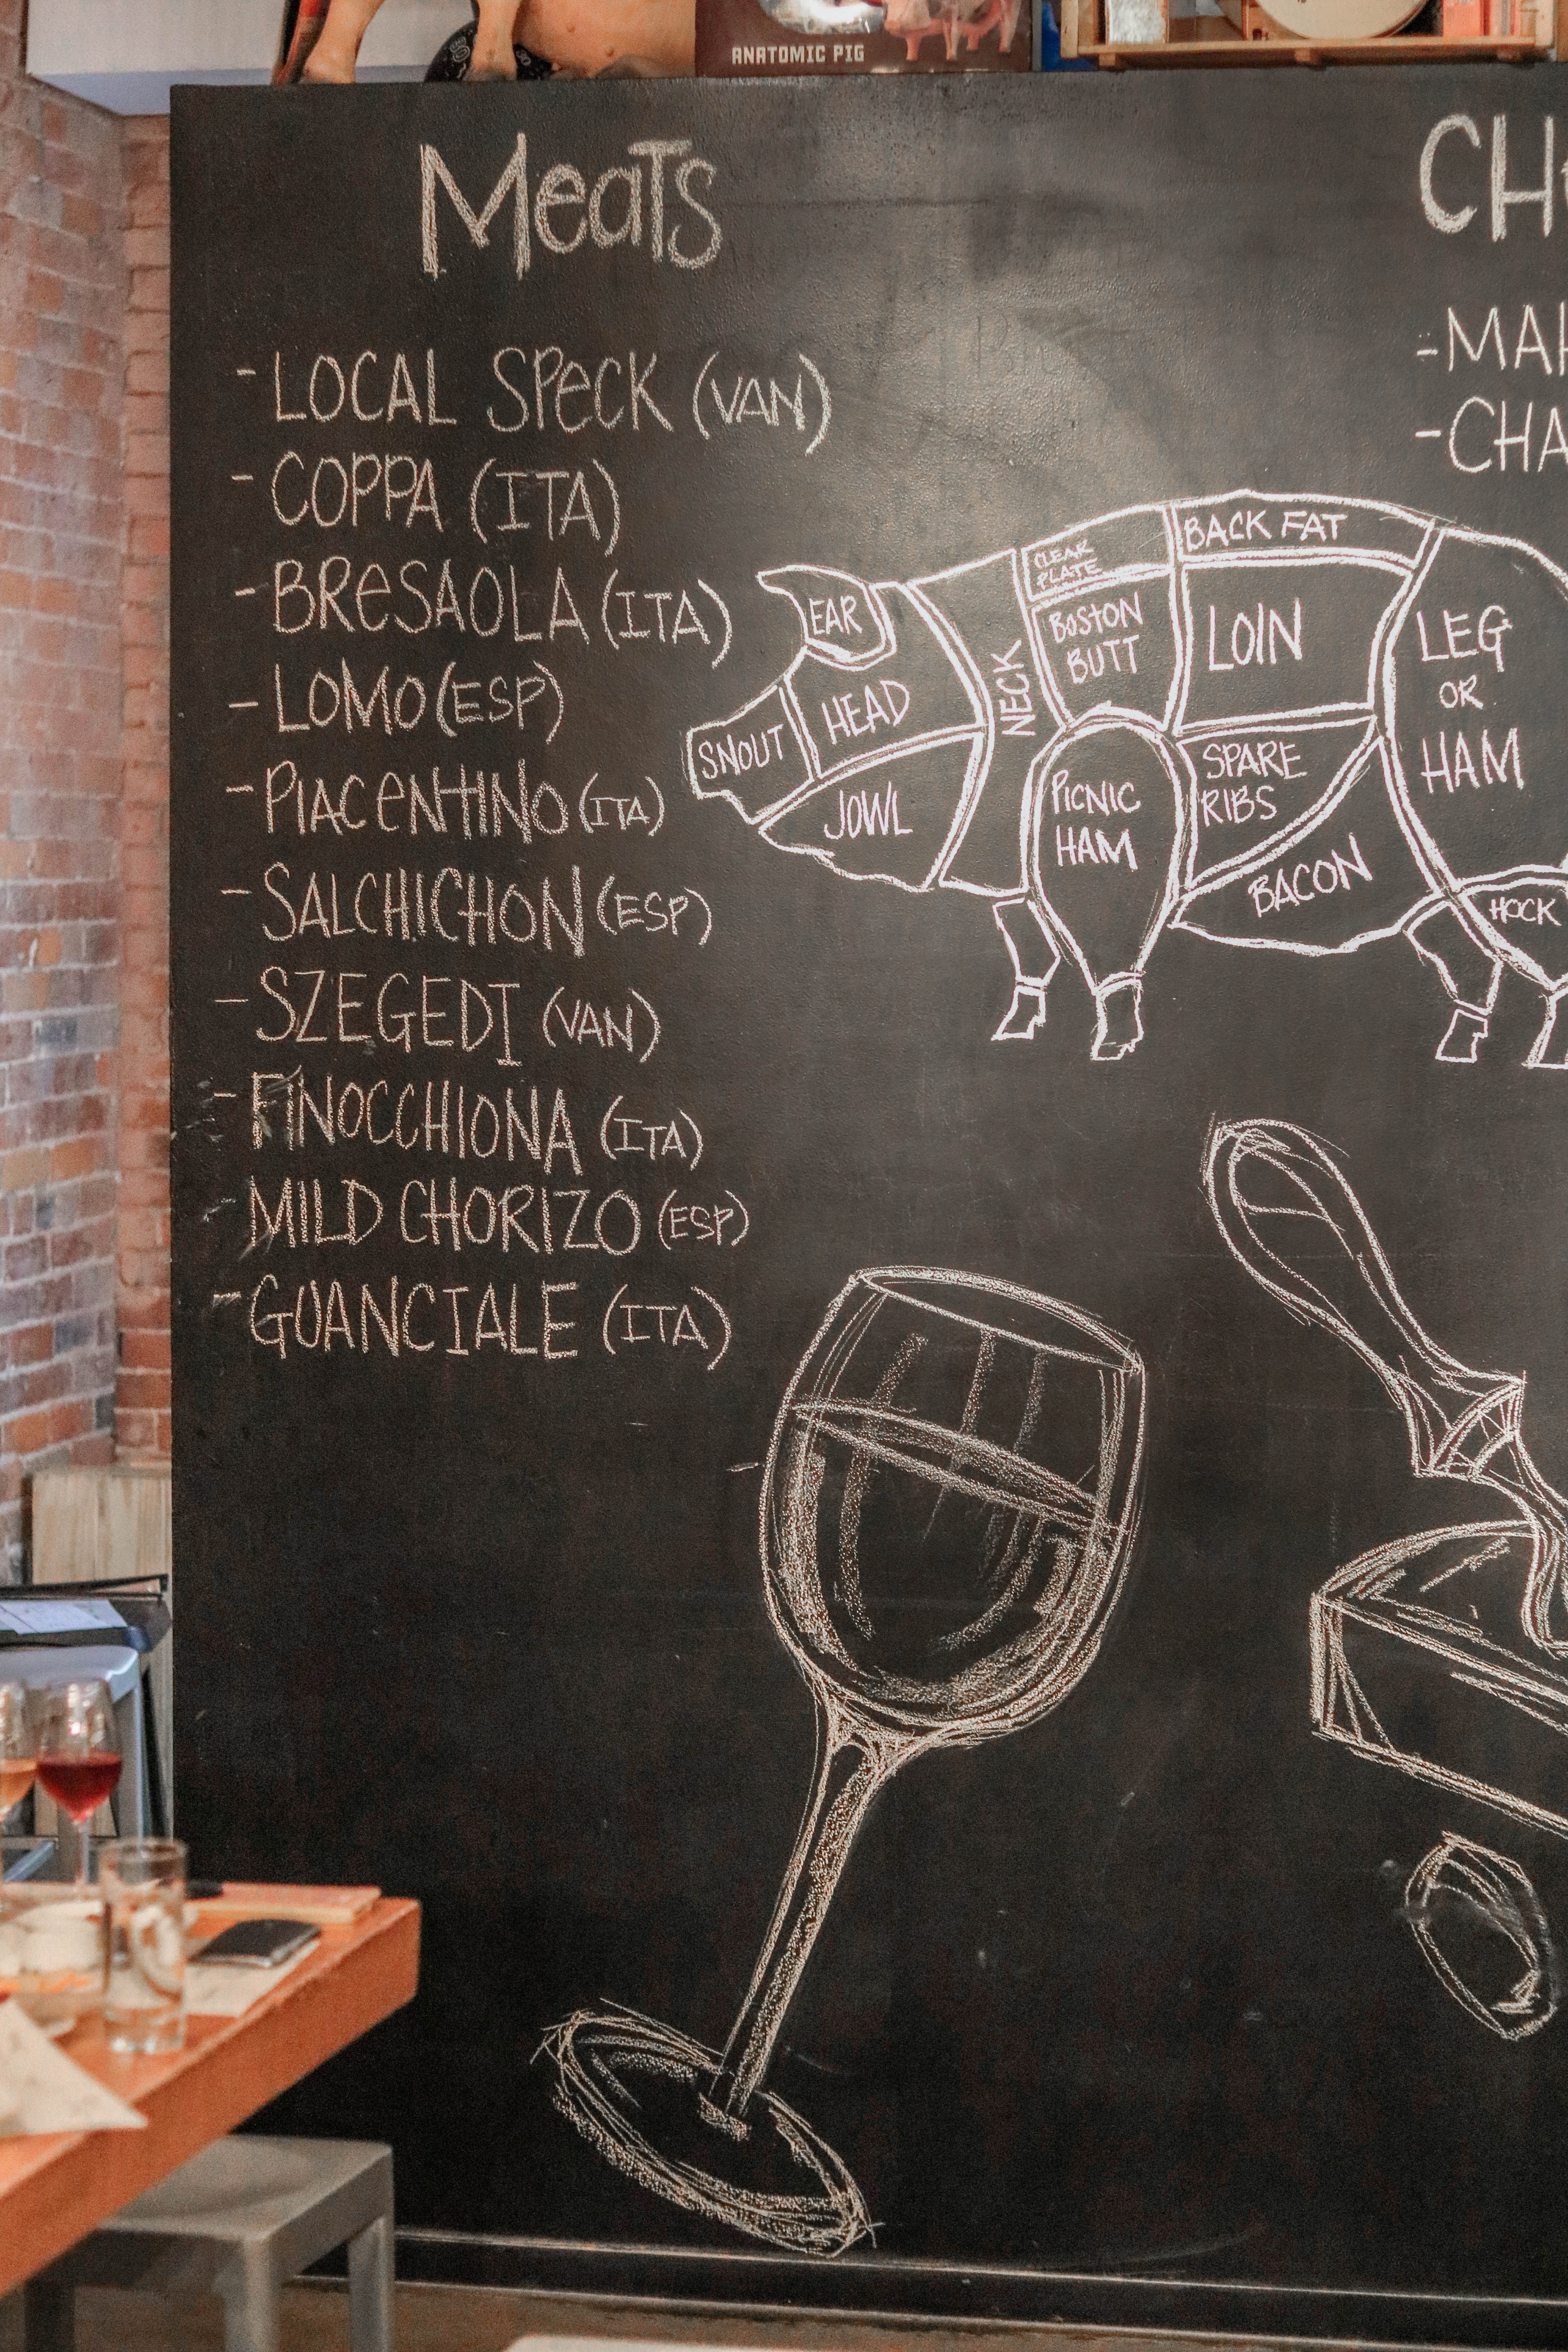 ANATOMIC PIG
Meats
- LOCAL SPECK (VAN)
- COPPA (ITA)
- BRESAOLA (ITA)
- LOMO (ESP)
- PIACENTINO (ITA)
- SALCHICHON (ESP)
- SZEGEDI (VAN)
- FINOCCHIONA (ITA)
MILD CHORIZO (ESP)
- GUANCIALE (ITA)
EAR
SNOUT
HEAD
JOWL
NECK
CLEAR
PLATE
BOSTON
BUTT
PICNIC
HAM
BACK FAT
LOIN
SPARE
RIBS
BACON
LEG
OR
HAM
HOCK
CH
-MA
-CHA